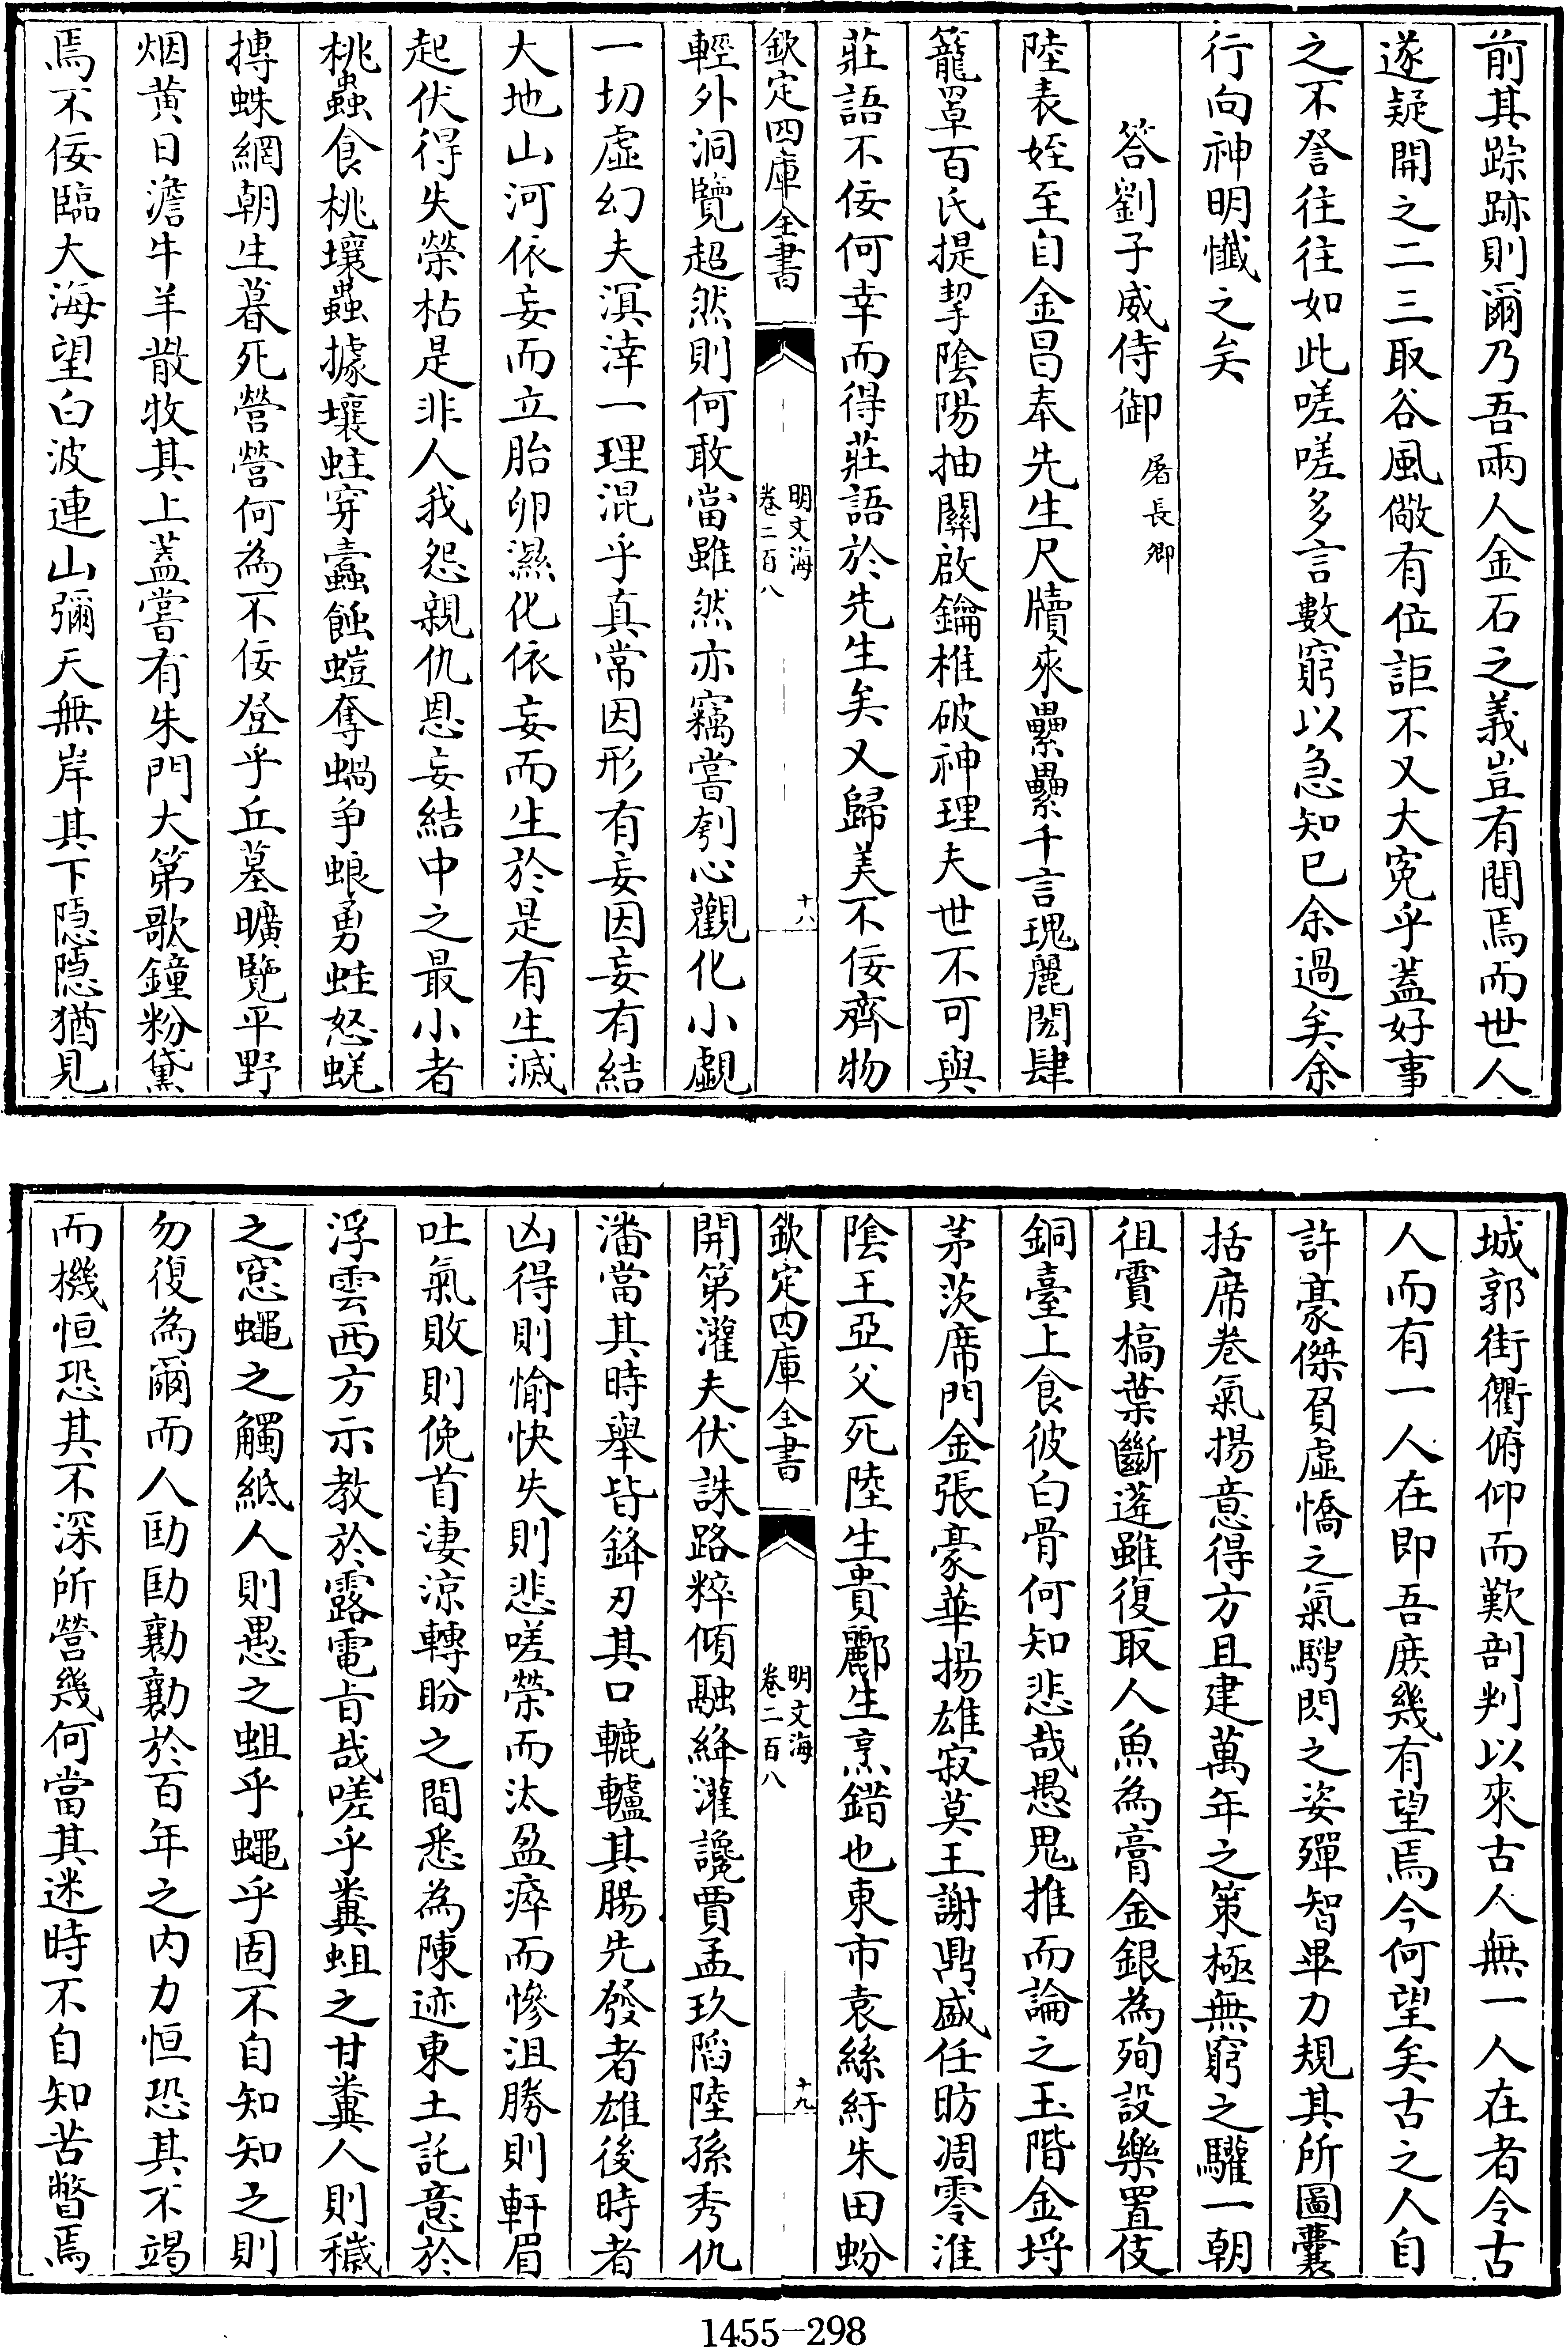 前其踪跡則爾乃吾兩人金石之義豈有間焉而世人
遂疑開之二三取谷風儆有位詎不又大寃乎蓋好事
之不詧往往如此嗟嗟多言數窮以急知已余過矣余
行向神明懺之矣
答劉子威侍御 屠長卿
陸表姪至自金昌奉先生尺牘來纍纍千言瑰麗閎肆
籠罩百氏提挈陰陽抽關啟鑰椎破神理夫世不可與
莊語不佞何幸而得莊語於先生矣又歸美不佞齊物
欽定四庫全書
明文海
卷二百八
十八
輕外洞覽超然則何敢當雖然亦竊嘗刳心觀化小覷
一切虛幻夫溟涬一理混乎真常因形有妄因妄有結
大地山河依妄而立胎卵濕化依妄而生於是有生滅
起伏得失榮枯是非人我怨親仇恩妄結中之最小者
桃蟲食桃壤蟲據壤蛀穿蠹蝕螘奪蝸爭蜋勇蛙怒蜣
搏蛛網朝生暮死營營何為不佞登乎丘墓曠覽平野
烟黄日澹牛羊散牧其上蓋嘗有朱門大第歌鐘粉黛
焉不佞臨大海望白波連山彌天無岸其下隱隱猶見
城郭街衢俯仰而歎剖判以來古人無一人在者令古
人而有一人在即吾庶幾有望焉今何望矣古之人自
許豪傑負虛憍之氣騁閃之姿殫智畢力規其所圖囊
括席卷氣揚意得方且建萬年之策極無窮之驩一朝
徂賈槁葉斷蓬雖復取人魚為膏金銀為殉設樂置伎
銅臺上食彼白骨何知悲哉愚鬼推而論之玉階金埒
茅茨席門金張豪華揚雄寂莫王謝鼎盛任昉凋零淮
陰王亞父死陸生貴酈生烹錯也東市袁絲紆朱田蚡
欽定四庫全書
明文海
卷二百八
十九
開第灌夫伏誅路粹傾融絳灌讒賈孟玖䧟陸孫秀仇
潘當其時舉皆鋒刃其口轆轤其腸先發者雄後時者
凶得則愉快失則悲嗟榮而汰盈瘁而慘沮勝則軒眉
吐氣敗則俛首凄涼轉盼之間悉為陳迹東土託意於
浮雲西方示教於露電旨哉嗟乎糞蛆之甘糞人則穢
之窓蠅之觸紙人則愚之蛆乎蠅乎固不自知知之則
勿復為爾而人劻劻勷勷於百年之内力恒恐其不竭
而機恒恐其不深所營幾何當其迷時不自知苦瞥焉
1455-298